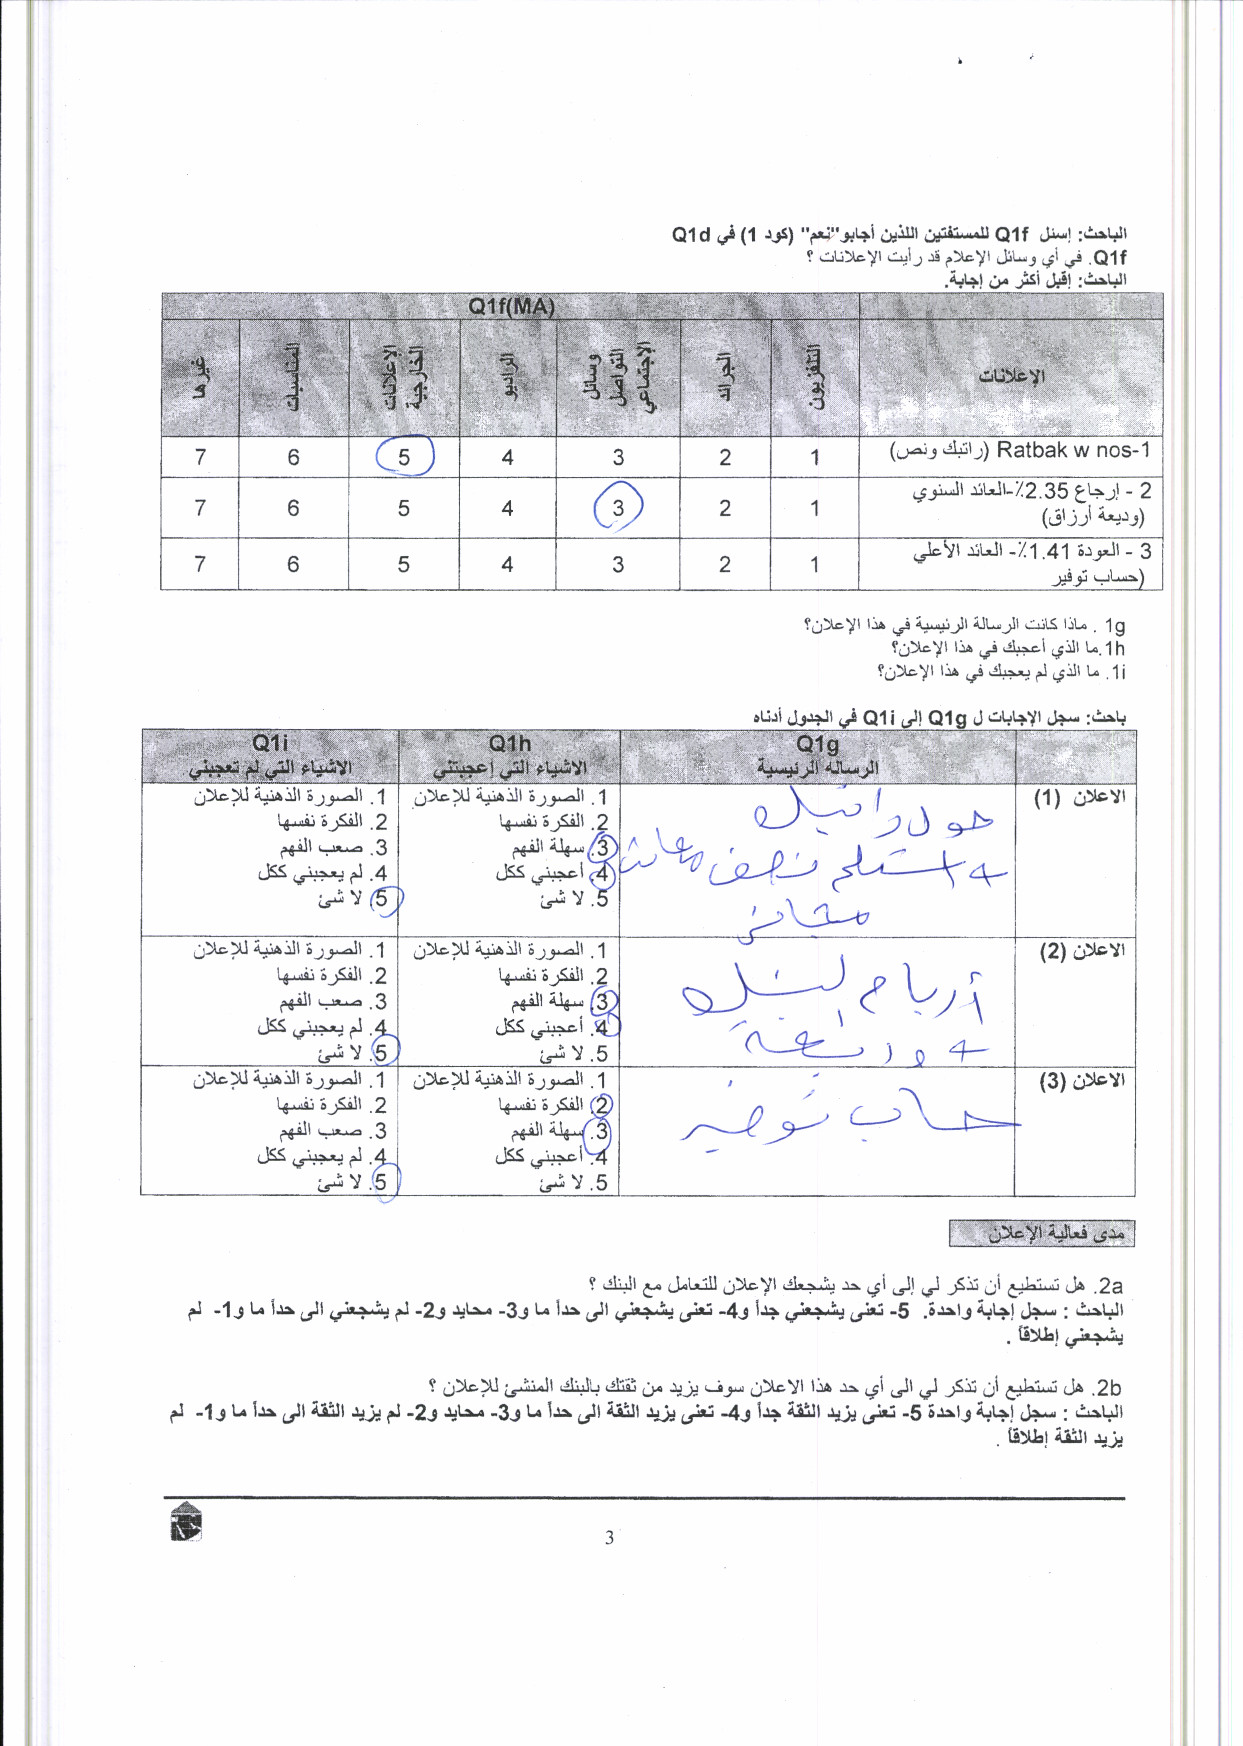 الباحث: إسئل Q1f للمستفتين اللذين أجابو"نعم" (كود 1) في Q1d
Q1f. في أي وسائل الإعلام قد رأيت الإعلانات ؟
الباحث: إقبل أكثر من إجابة.
Q1f(MA)
الإعلانات
التلفزيون
الجرائد
وسائل التواصل الإجتماعي
الراديو
الإعلانات الخارجية
المناسبات
غيرها
1-Ratbak w nos (راتبك ونص)
1 2 3 4 5 6 7
2 - إرجاع 2.35٪-العائد السنوي
(وديعة أرزاق)
1 2 3 4 5 6 7
3 - العودة 1.41٪- العائد الأعلي
(حساب توفير
1 2 3 4 5 6 7
1g . ماذا كانت الرسالة الرئيسية في هذا الإعلان؟
1h.ما الذي أعجبك في هذا الإعلان؟
1i. ما الذي لم يعجبك في هذا الإعلان؟
باحث: سجل الإجابات ل Q1g إلى Q1i في الجدول أدناه
Q1g
الرساله الرئيسية
Q1h
الاشياء التي اعجبتني
Q1i
الاشياء التي لم تعجبني
الاعلان (1)
حول راتبك
+ استلم نصف معاش
مجاني
1. الصورة الذهنية للإعلان
2. الفكرة نفسها
3. سهلة الفهم
4. أعجبني ككل
5. لا شئ
1. الصورة الذهنية للإعلان
2. الفكرة نفسها
3. صعب الفهم
4. لم يعجبني ككل
5. لا شئ
الاعلان (2)
أرباح
+
1. الصورة الذهنية للإعلان
2. الفكرة نفسها
3. سهلة الفهم
4. أعجبني ككل
5. لا شئ
1. الصورة الذهنية للإعلان
2. الفكرة نفسها
3. صعب الفهم
4. لم يعجبني ككل
5. لا شئ
الاعلان (3)
حساب توفير
1. الصورة الذهنية للإعلان
2. الفكرة نفسها
3. سهلة الفهم
4. أعجبني ككل
5. لا شئ
1. الصورة الذهنية للإعلان
2. الفكرة نفسها
3. صعب الفهم
4. لم يعجبني ككل
5. لا شئ
مدى فعالية الإعلان
2a. هل تستطيع أن تذكر لي إلى أي حد يشجعك الإعلان للتعامل مع البنك ؟
الباحث : سجل إجابة واحدة. 5- تعنى يشجعني جداً و4- تعنى يشجعني الى حداً ما و3- محايد و2- لم يشجعني الى حداً ما و1- لم
يشجعني إطلاقاً .
2b. هل تستطيع أن تذكر لي الى أي حد هذا الاعلان سوف يزيد من ثقتك بالبنك المنشئ للإعلان ؟
الباحث : سجل إجابة واحدة 5- تعنى يزيد الثقة جداً و4- تعنى يزيد الثقة الى حداً ما و3- محايد و2- لم يزيد الثقة الى حداً ما و1- لم
يزيد الثقة إطلاقاً .
3